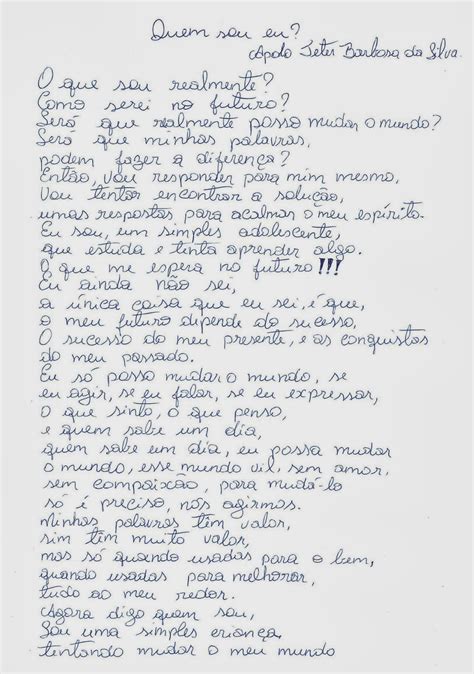 Quem sou eu?
Apolo Jeter Barbosa da Silva.
O que sou realmente?
Como serei no futuro?
Será que realmente posso mudar o mundo?
Será que minhas palavras,
podem fazer a diferença?
Então, vou responder para mim mesmo,
Vou tentar encontrar a solução,
umas respostas para acalmar o meu espírito.
Eu sou, um simples adolescente,
que estuda e tenta aprender algo.
O que me espera no futuro!!!
Eu ainda não sei,
a única coisa que eu sei, é que,
o meu futuro depende do sucesso,
O sucesso do meu presente, e as conquistas
do meu passado.
Eu só posso mudar o mundo, se
eu agir, se eu falar, se eu expressar,
O que sinto, o que penso,
e quem sabe um dia,
quem sabe um dia, eu possa mudar
o mundo, esse mundo vil, sem amor,
sem compaixão, para mudá-lo
só é preciso, nós agirmos.
Minhas palavras têm valor,
sim têm muito valor,
mas só quando usadas para o bem,
quando usadas para melhorar,
tudo ao meu redor.
Agora digo quem sou,
Sou uma simples criança
tentando mudar o meu mundo